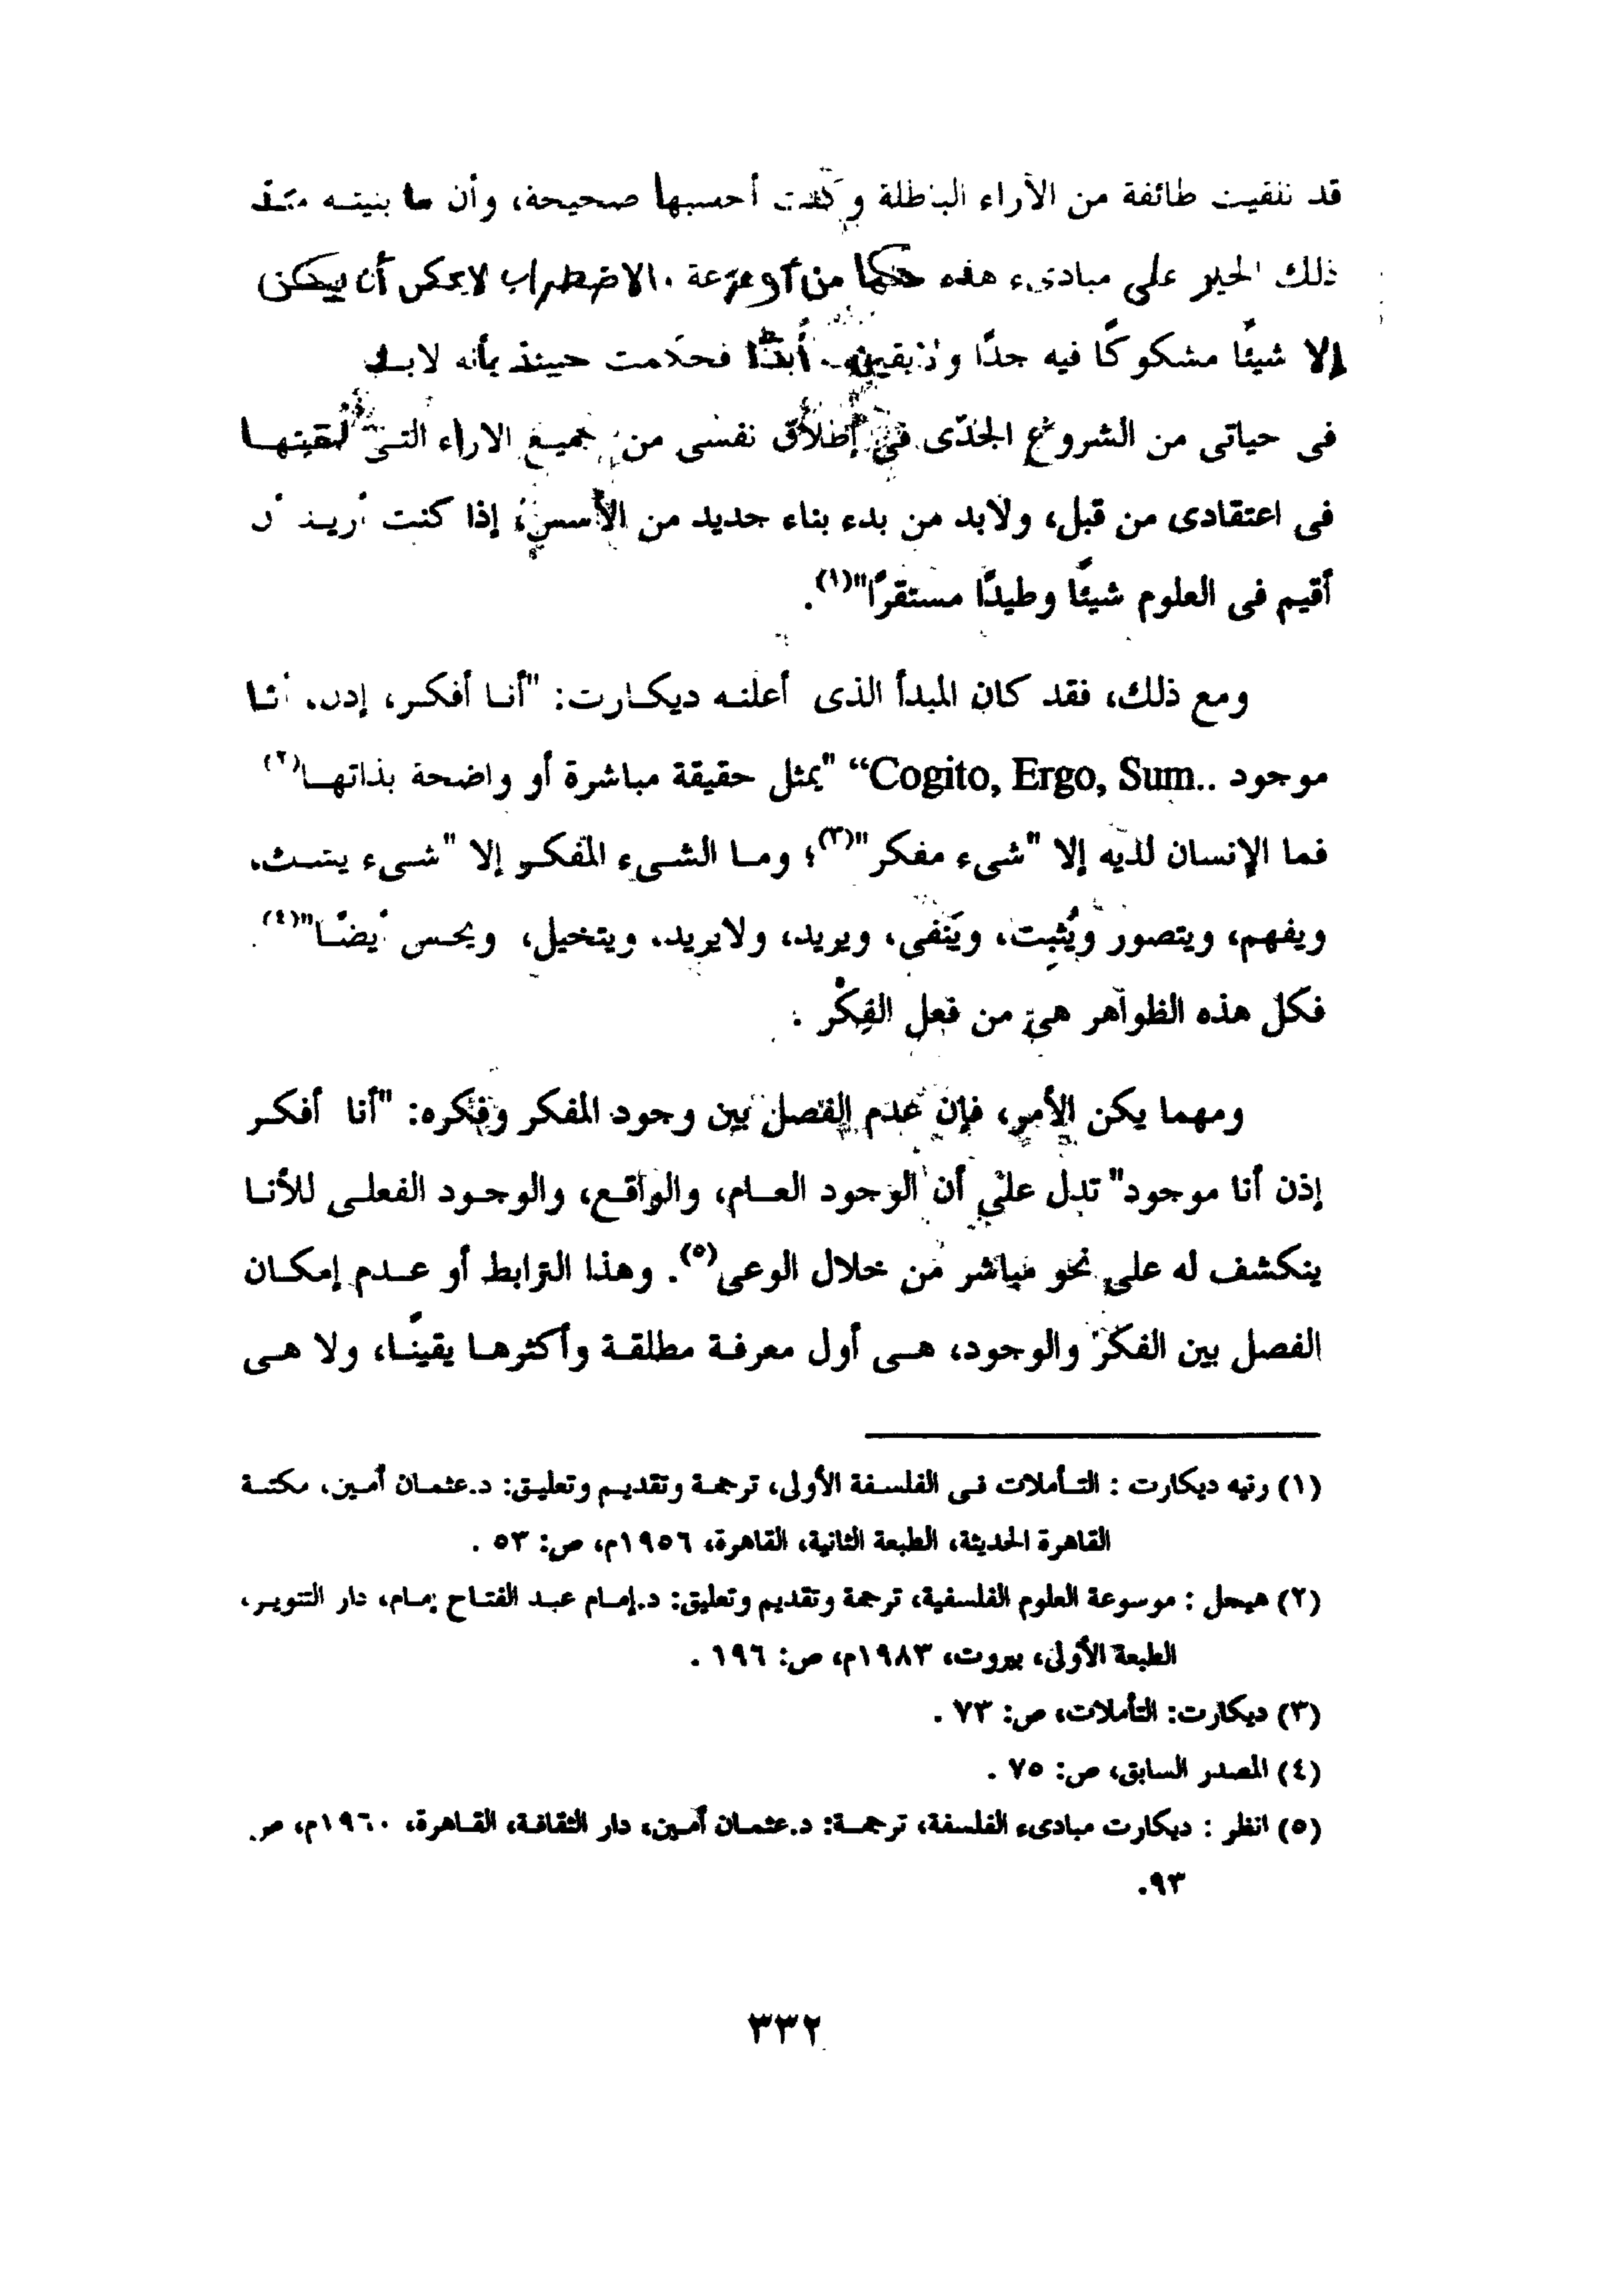 قد تلقيت طائفة من الآراء الباطلة وكنت أحسبها صحيحة، وأن ما بنيته منذ
ذلك الحين على مبادىء هذه حالها من الزعزعة والاضطراب لا يمكن أن يكون
إلا شيئًا مشكوكًا فيه جدًا ولا يقين له أبدًا فحكمت حينئذ بأنه لابد
فى حياتى من الشروع الجدّى فى إطلاق نفسى من جميع الاراء التى تلقيتها
فى اعتقادى من قبل، ولابد من بدء بناء جديد من الأسس، إذا كنت أريد أن
أقيم فى العلوم شيئًا وطيدًا مستقرًا"(١).
ومع ذلك، فقد كان المبدأ الذى أعلنه ديكارت: "أنا أفكر، إذن، أنا
موجود ..Cogito, Ergo, Sum“ "يمثل حقيقة مباشرة أو واضحة بذاتها(٢)
فما الإنسان لديه إلا "شىء مفكر"(٣)؛ وما الشىء المفكر إلا "شىء يشك،
ويفهم، ويتصور ويُثبِت، ويَنفى، ويريد، ولايريد، ويتخيل، ويحس أيضًا"(٤).
فكل هذه الظواهر هى من فعل الفِكْر .
ومهما يكن الأمر، فإن عدم الفصل بين وجود المفكر وفكره: "أنا أفكر
إذن أنا موجود" تدل على أن الوجود العام، والواقع، والوجود الفعلى للأنا
ينكشف له على نحو مباشر من خلال الوعى(٥). وهذا الترابط أو عدم إمكان
الفصل بين الفكر والوجود، هى أول معرفة مطلقة وأكثرها يقينًا، ولا هى
(١) رنيه ديكارت : التأملات فى الفلسفة الأولى، ترجمة وتقديم وتعليق: د.عثمان أمين، مكتبة
القاهرة الحديثة، الطبعة الثانية، القاهرة، ١٩٥٦م، ص: ٥٣ .
(٢) هيجل : موسوعة العلوم الفلسفية، ترجمة وتقديم وتعليق: د.إمام عبد الفتاح إمام، دار التنوير،
الطبعة الأولى، بيروت، ١٩٨٣م، ص: ١٩٦ .
(٣) ديكارت: التأملات، ص: ٧٣ .
(٤) المصدر السابق، ص: ٧٥ .
(٥) انظر : ديكارت مبادىء الفلسفة، ترجمة: د.عثمان أمين، دار الثقافة، القاهرة، ١٩٦٠م، ص
٩٣.
٣٣٢